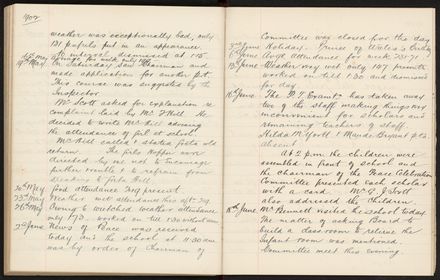 1902
weather was exceptionally bad, only
131 pupils put in an appearance.
At interval dismissed at 1.15
average for week only 160
19th May On Saturday saw Chairman and
made application for another pot.
This course was suggested by the
Inspector.
Mr Scott asked for explanation re
complaint laid by Mr J Hill. He
decided to write Mr Hill advising
the attendance of girl at school.
Mr Hill called & stated girl
return. The Girls
directed by me not to
further trouble & to refrain from
Hill
20th May Good attendance present
23rd May Weather wet attendance this aft.
26th May Owing to wretched weather attendance
only 73. worked on till 1.30 without
2nd June News of Peace was received
today in the school at 11.30 am
was by order of Chairman of
Committee was closed for the day
3rd June Holiday. Prince of Wales's Birthday
6th June Avge attendance for week
13th June Weather very wet only 107 present
worked on till 1.30 and dismissed
for day
16th June The D. T. Exams has taken away
two of the staff making things very
inconvenient for scholars and
remaining teachers of staff.
Hilda M Yorll & Maud Bryant p.t's
absent
At 2 p.m. the children were
assembled in front of school and
the Chairman of the Peace Celebration
Committee presented each scholar
with a card. Mr G J Scott
also addressed the children.
June Mr Bennett visited the school today.
The matter of asking Board to
build a class room to relieve the
Infant room was mentioned.
Committee meet this evening.